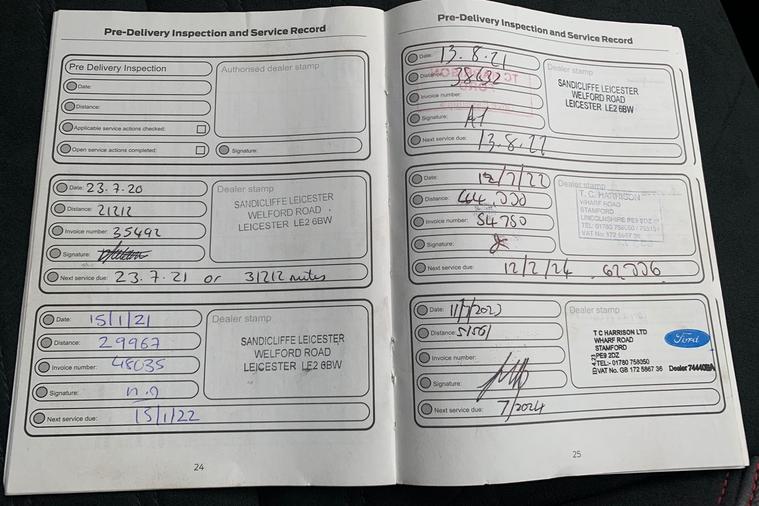 Pre-Delivery Inspection and Service Record
Pre Delivery Inspection
Date:
Distance:
Applicable service actions checked:
Open service actions completed:
Authorised dealer stamp
Signature:
Date: 23.7.20
Distance: 21212
Invoice number: 35492
Signature:
Next service due: 23.7.21 or 31212 miles
Dealer stamp
SANDICLIFFE LEICESTER
WELFORD ROAD
LEICESTER LE2 6BW
Date: 15/1/21
Distance: 29967
Invoice number: 48035
Signature:
Next service due: 15/1/22
Dealer stamp
SANDICLIFFE LEICESTER
WELFORD ROAD
LEICESTER LE2 6BW
24
Pre-Delivery Inspection and Service Record
Date: 13.8.21
Distance: 38632
Invoice number:
Signature:
Next service due: 13.8.22
Dealer stamp
SANDICLIFFE LEICESTER
WELFORD ROAD
LEICESTER LE2 6BW
Date: 12/7/22
Distance:
Invoice number: 54750
Signature:
Next service due: 12/2/24
Dealer stamp
T. C. HARRISON
WHARF ROAD
STAMFORD
LINCOLNSHIRE PE9 2DZ
TEL: 01780
VAT No: 172 5867 36
Date: 11/7/2023
Distance: 51561
Invoice number:
Signature:
Next service due: 7/2024
Dealer stamp
T C HARRISON LTD
WHARF ROAD
STAMFORD
PE9 2DZ
TEL:- 01780 758350
VAT No. GB 172 5867 36
Ford
Dealer
25